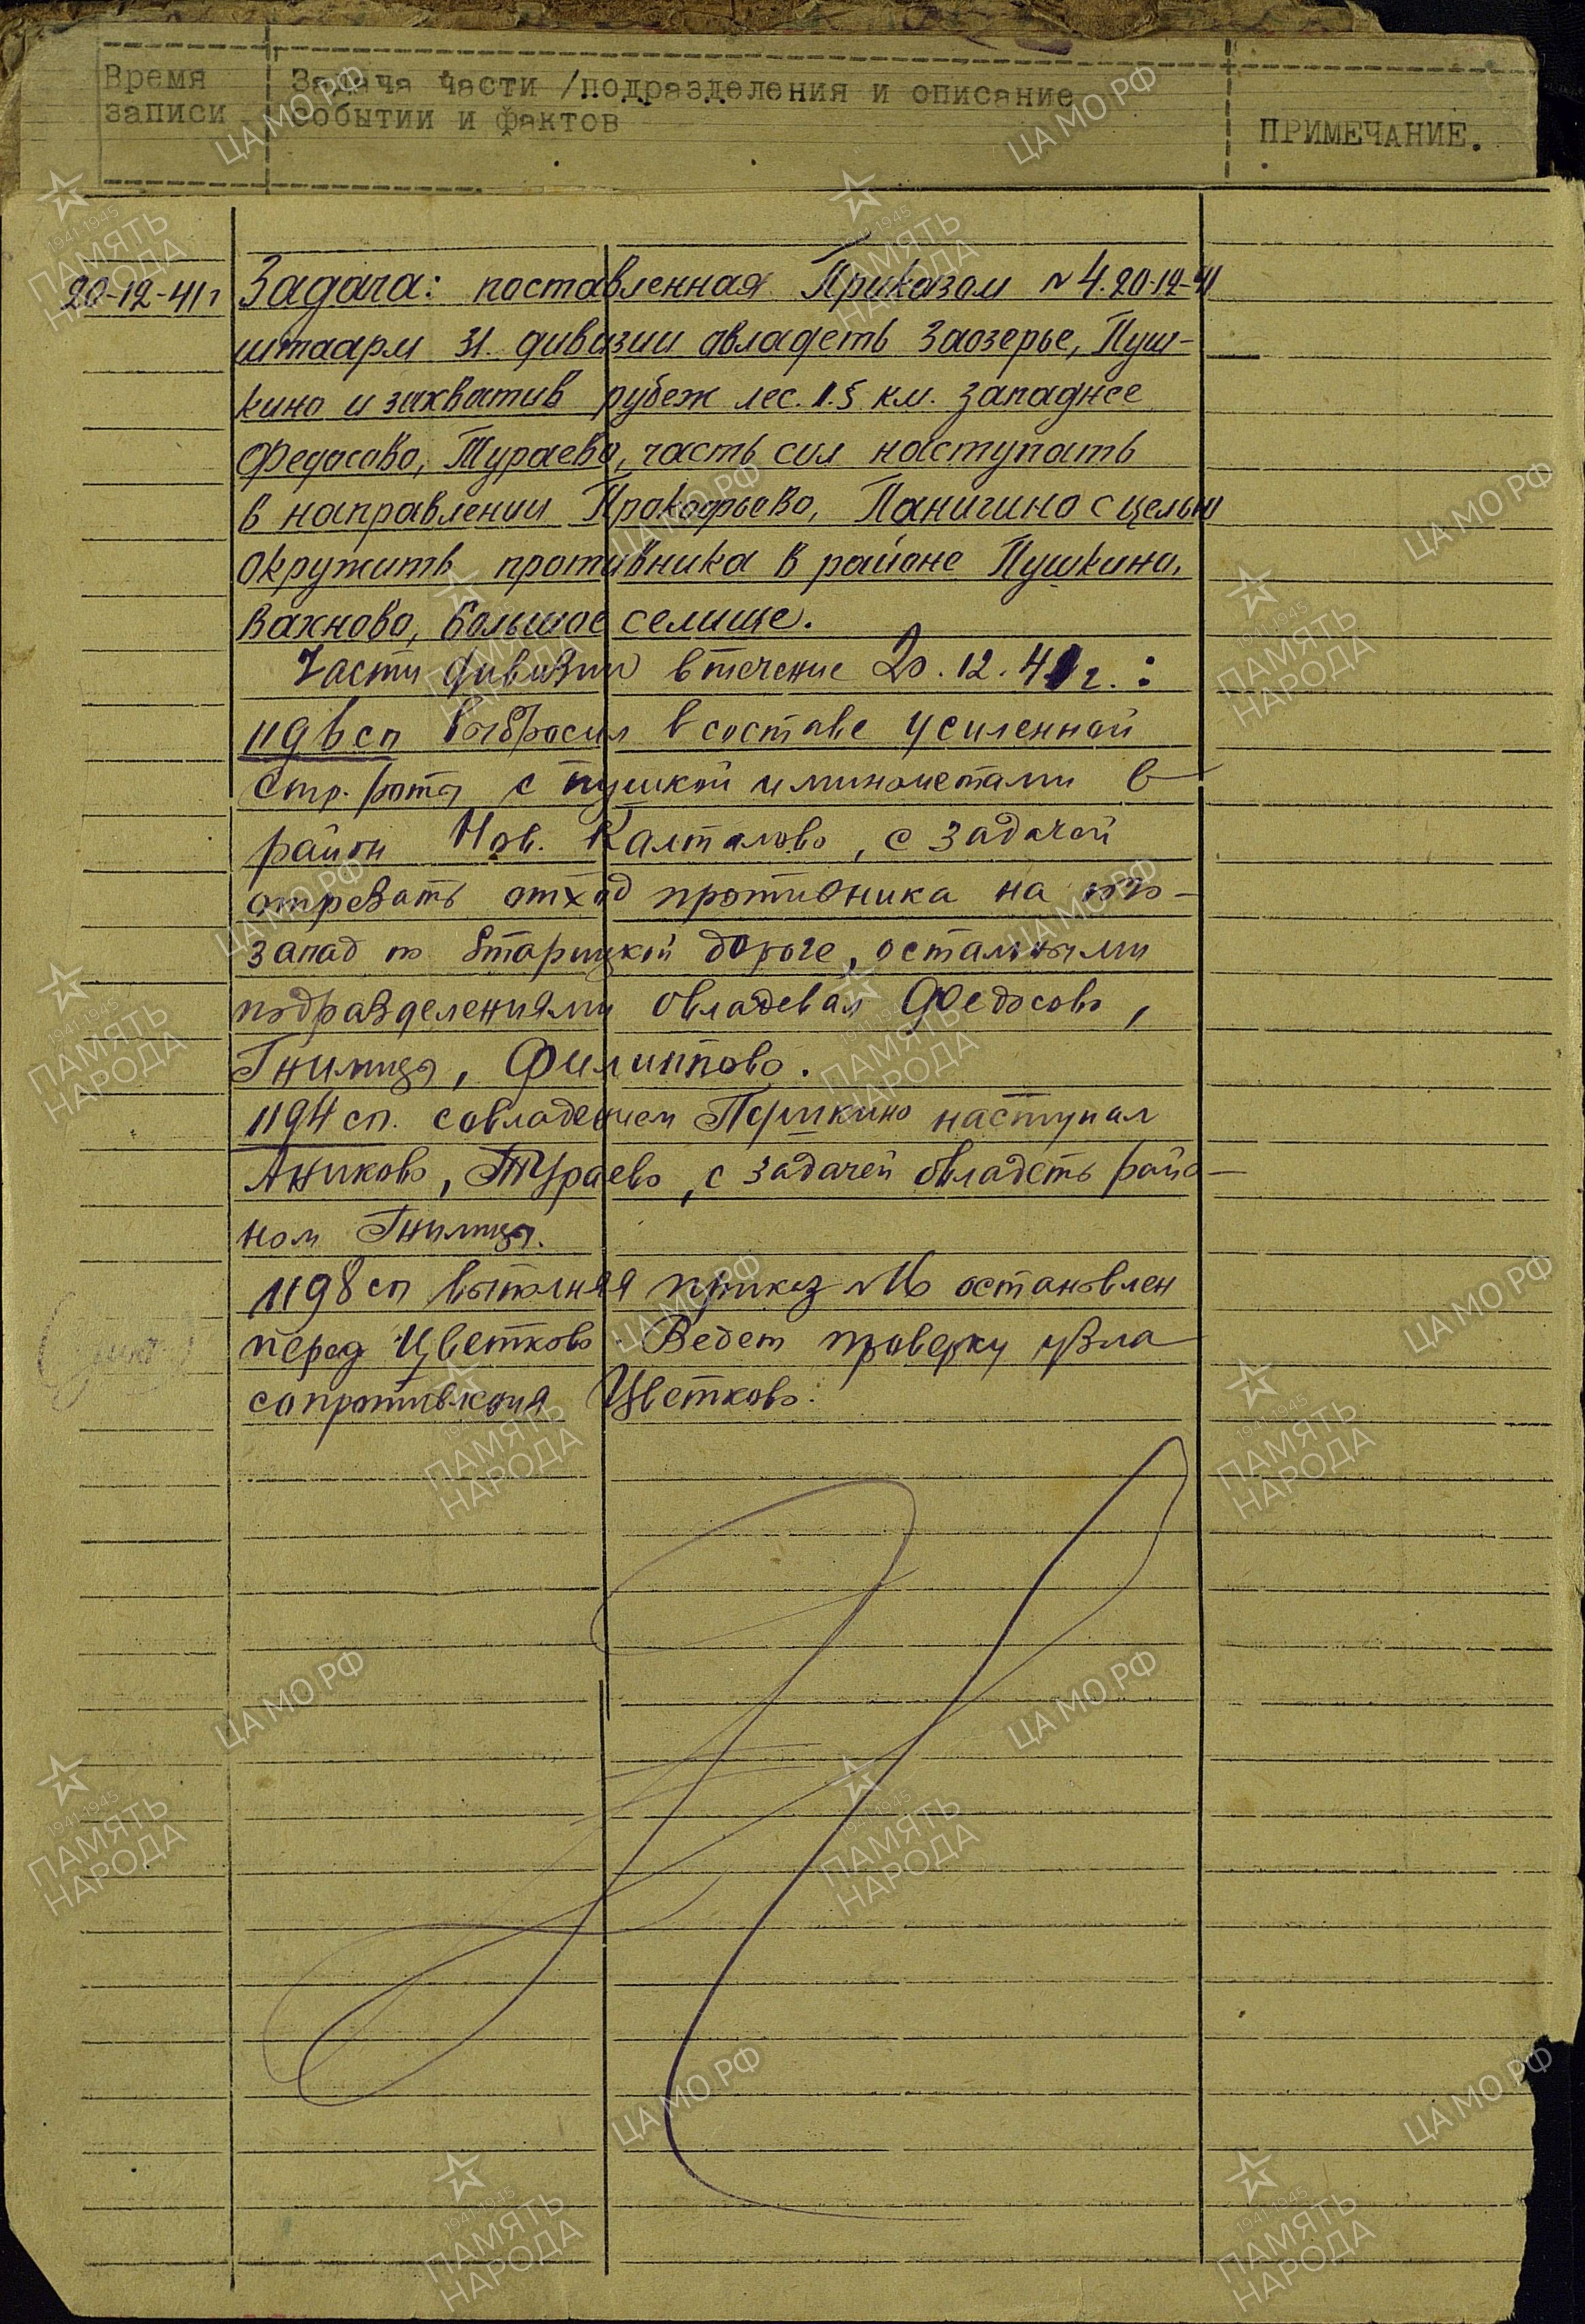 Время записи
Задача части /подразделения и описание
событии и фактов
ПРИМЕЧАНИЕ.
20-12-41г
Задача: поставленная Приказом №4. 20-12-41
штаарм 31. дивизии овладеть Заозерье, Пуш-
кино и захватив рубеж лес. 1.5 км. западнее
Федосово, Тураево, часть сил наступать
в направлении Прокофьево, Панигино с целью
окружить противника в районе Пушкино,
Вахново, Большое селище.
Части дивизии в течение 20.12.41г.:
1196 сп выбросил в составе усиленной
стр. рота с пушкой и минометами в
район Нов. Калталово, с задачей
отрезать отход противника на юго-
запад по Старицкой дороге, остальными
подразделениями овладевал Федосово,
Гнилица, Филиппово.
1194 сп. с овладением Пушкино наступал
Аниково, Тураево, с задачей овладеть райо-
ном Гнилица.
1198 сп выполняя приказ остановлен
перед Цветково. Ведет проверку узла
сопротивления Цветково.